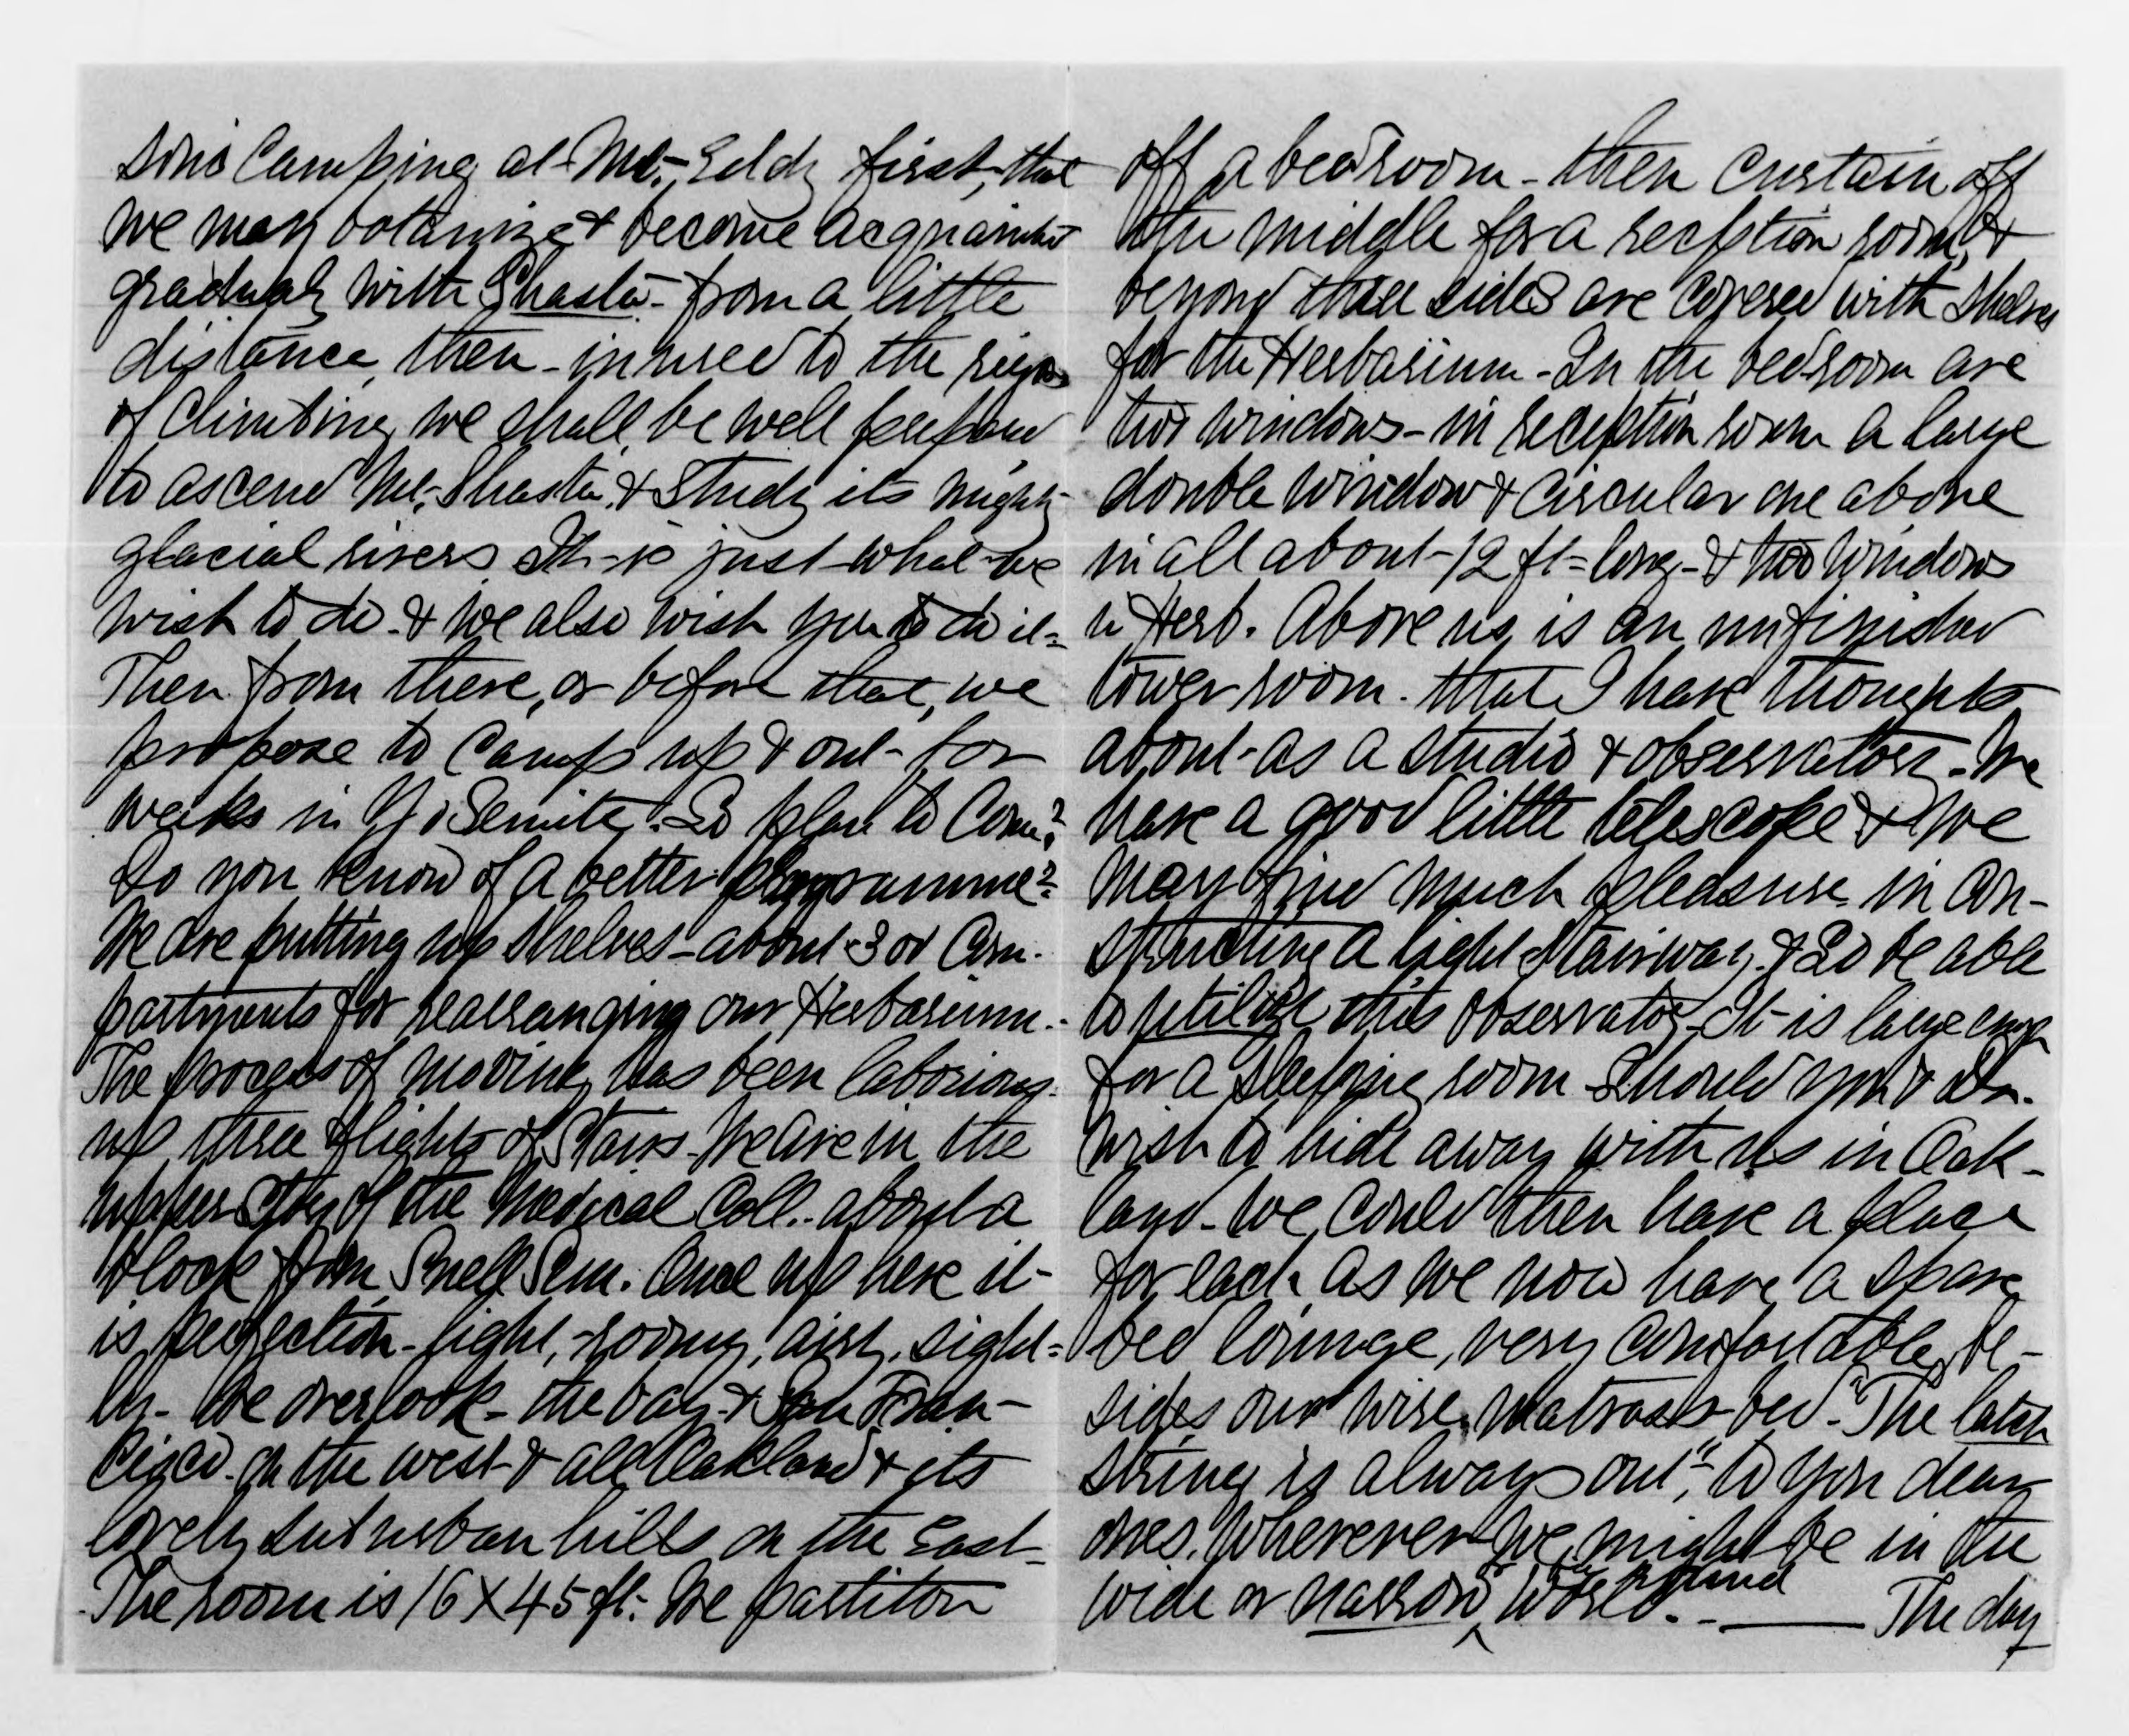 sons Camping at Mt. Eddy first, that
we may botanize & become acquainted
gradualy with Shasta - from a little
distance, then - inured to the rigors
of climbing we shall be well prepared
to ascend Mt. Shasta & Study its mighty
glacial rivers It is just what we
wish to do - & we also wish you to do it =
Then from there, or before that, we
propose to Camp up & out for
weeks in Yo Semite. So plan to Come?
Do you know of a better programme?
We are putting up shelves - about 300 Com-
partments for rearranging our Herbarium -
The process of moving has been laborious -
up three flights of Stairs - We are in the
upper Story of the Medical Coll. about a
block from Snell Sem. Once up here it
is perfection - light, roomy, airy, sight-
ly - We overlook - the bay & San Fran-
cisco on the west & all Oakland & its
lovely suburban hills on the East -
The room is 16 X 45 ft. We partition
off a bedroom - then Curtain off
the middle for a reception room, &
beyond three sides are covered with Shelves
for the Herbarium - In the bedroom are
two windows - in reception room a large
double window & circular one above
in all about 12 ft = long - & two windows
in Herb. Above us is an unfinished
tower room. that I have thoughts
about - as a studio & observatory - We
have a good little telescope & we
may find much pleasure in con-
structing a light stairway. & so be able
to utilize this observatory - It is large enough
for a sleeping room should you & Dr.
wish to hide away with us in Oak-
land - We could then have a place
for each as we now have a spare
bed lounge, very comfortable, be-
sides our wire matrass bed - "The latch
string is always out", to you dear
ones. wherever we might be in the
wide or narrow, round world. - The day